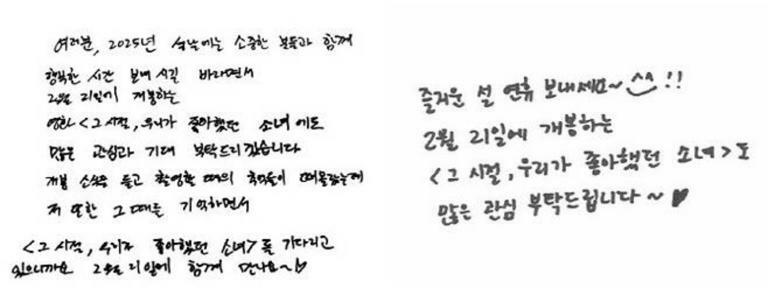 여러분, 2025년 설날에는 소중한 분들과 함께
행복한 시간 보내시길 바라면서
2월 21일에 개봉하는
영화 <그 시절, 우리가 좋아했던 소녀>에도
많은 관심과 기대 부탁드리겠습니다
개봉 소식을 듣고 촬영할 때의 추억들이 떠올랐는데
저 또한 그 때를 기억하면서
<그 시절, 우리가 좋아했던 소녀>를 기다리고
있으니까요 2월 21일에 함께 만나요~♡
즐거운 설 연휴 보내세요~^^!!
2월 21일에 개봉하는
<그 시절, 우리가 좋아했던 소녀>도
많은 관심 부탁드립니다~♥